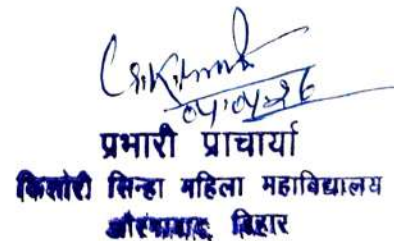 04.04.26
प्रभारी प्राचार्या
किशोरी सिन्हा महिला महाविद्यालय
औरंगाबाद बिहार